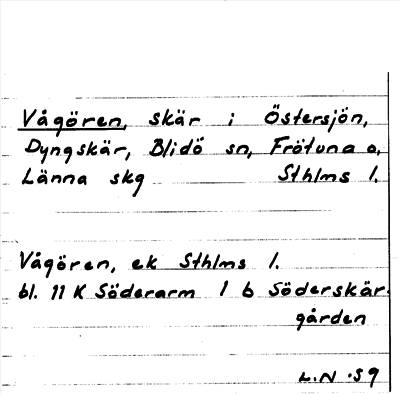 Vågören, skär i Östersjön,
Dyngskär, Blidö sn, Frötuna o.
Länna skg Sthlms l.
Vågören, ek Sthlms l.
bl. 11 K Söderarm 1 b Söderskär-
gården
L.N. -59